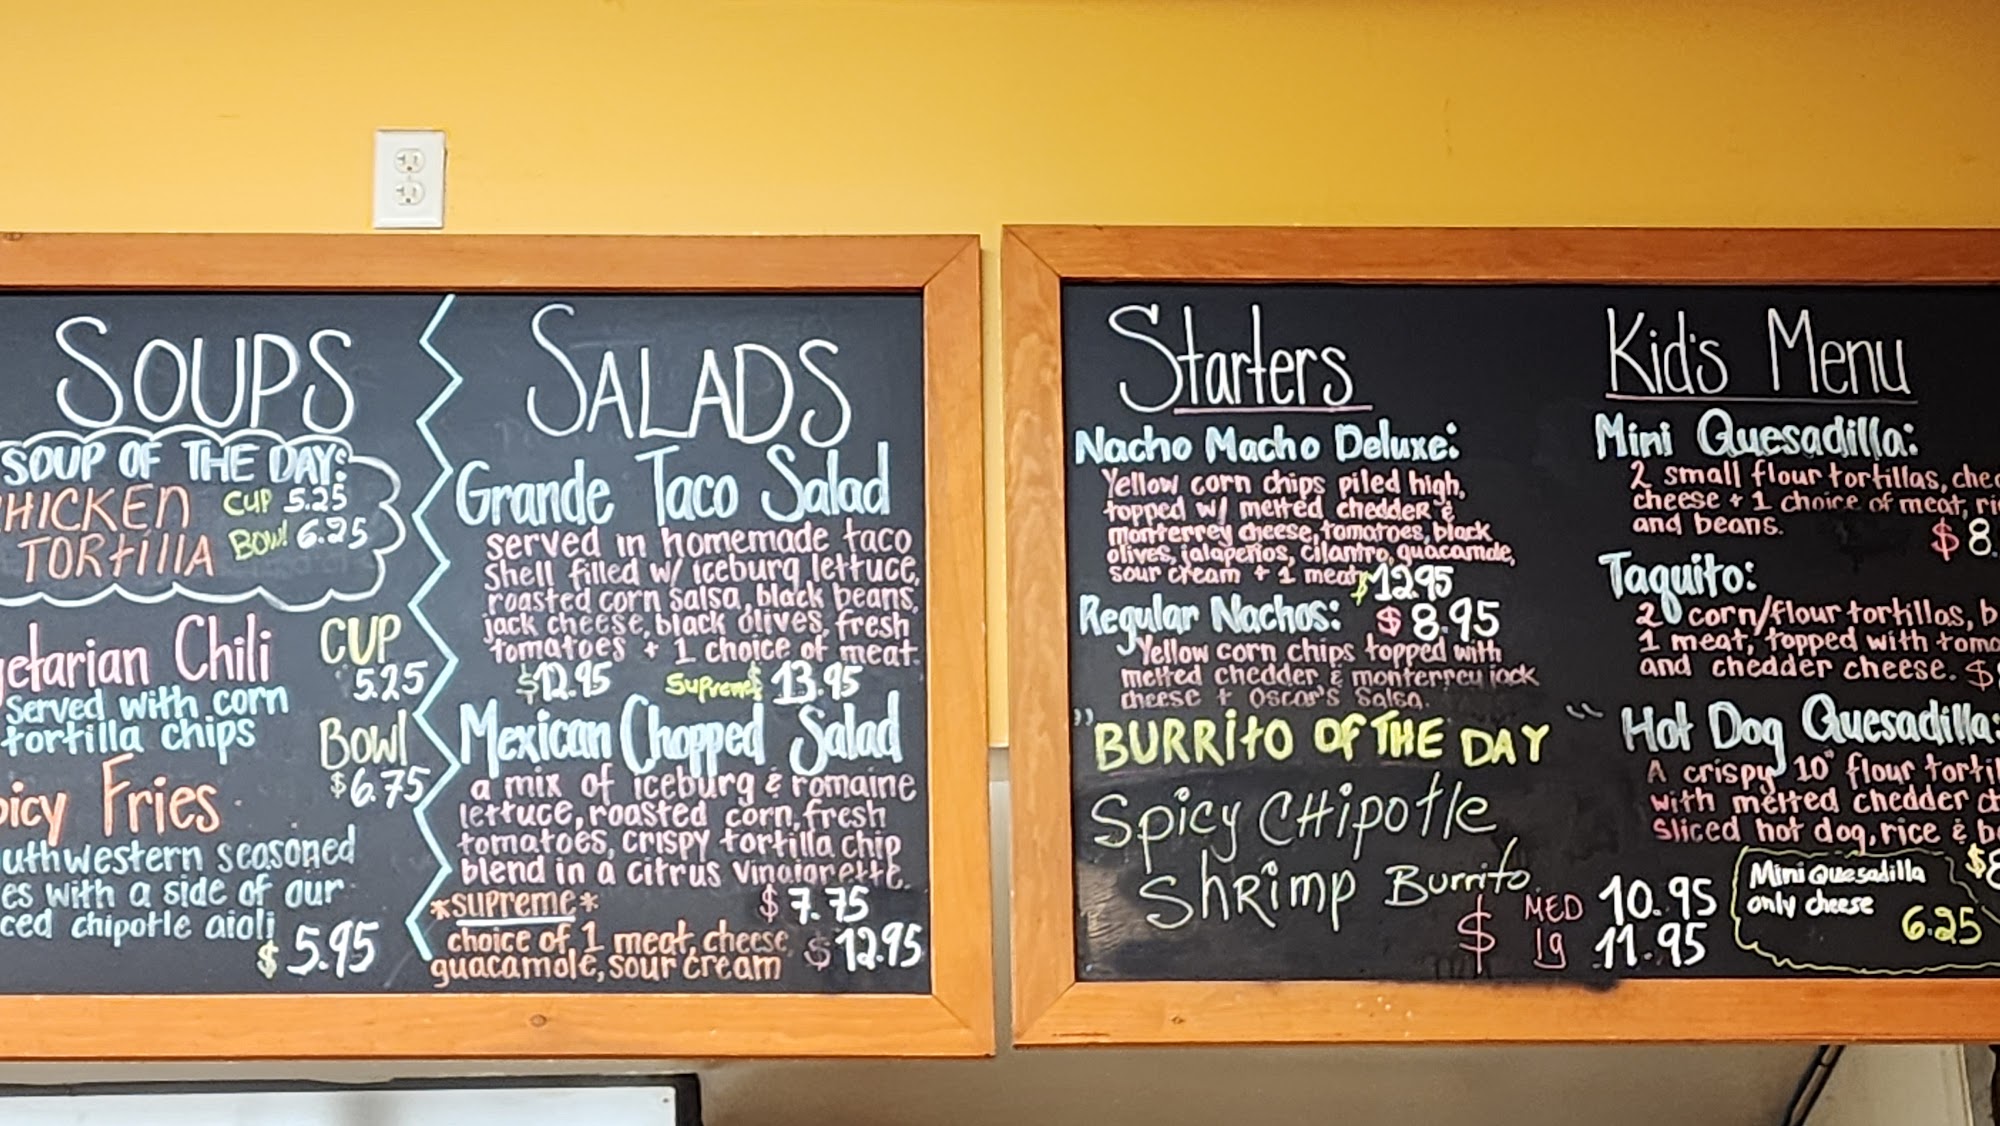 SOUPS
SOUP OF THE DAY:
HICKEN CUP 5.25
TORtillA BOWl 6.25
getarian Chili CUP
Served with corn 5.25
tortilla chips BOWl
icy Fries $6.75
uthwestern seasoned
es with a side of our
ced chipotle aioli
$ 5.95
SALADS
Grande Taco Salad
served in homemade taco
shell filled w/ iceburg lettuce,
roasted corn salsa, black beans,
jack cheese, black olives, fresh
tomatoes + 1 choice of meat.
$12.95 Supreme $ 13.95
Mexican Chopped Salad
a mix of iceburg & romaine
lettuce, roasted corn, fresh
tomatoes, crispy tortilla chip
blend in a citrus vinaigrette.
*SUPREME* $ 7.75
choice of 1 meat, cheese $ 12.95
guacamole, sour cream
Starters
Nacho Macho Deluxe:
Yellow corn chips piled high,
topped w/ melted chedder &
monterrey cheese, tomatoes, black
olives, jalapeños, cilantro, guacamole,
sour cream + 1 meat $12.95
Regular Nachos: $ 8.95
Yellow corn chips topped with
melted chedder & monterrey jack
cheese + Oscar's Salsa.
"BURRITO OF THE DAY"
Spicy CHipotle
SHRimp Burrito
$ MED 10.95
lg 11.95
Kid's Menu
Mini Quesadilla:
2 small flour tortillas, ched
cheese + 1 choice of meat, ri
and beans.
$ 8.
Taquito:
2 corn/flour tortillas, b
1 meat, topped with toma
and chedder cheese. $
Hot Dog Quesadilla:
A crispy 10" flour tortil
with melted chedder ch
sliced hot dog, rice & be
$8
Mini Quesadilla
only cheese
6.25